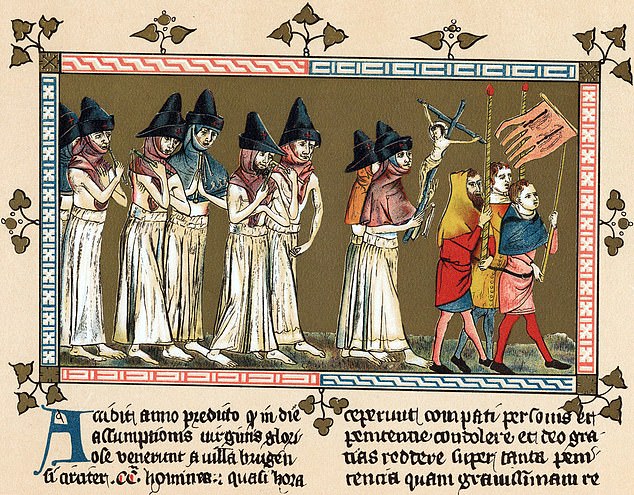 Accidit anno predicto q in die
assumptionis uirginis glori
ose venerunt a villa brugen
si circiter .CC. homines: quasi hora
ceperunt compati personis et
penitencie condolere et deo gra
tias reddere super tanta peni
tencia quam grauissimam re